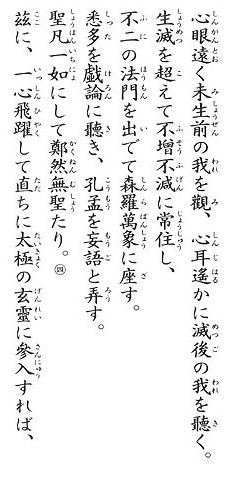 心眼遠く未生前の我を觀、心耳遙かに滅後の我を聽く。
生滅を超えて不增不滅に常住し、
不二の法門を出でて森羅萬象に座す。
悉多を戲論に聽き、孔孟を妄語と弄す。
聖凡一如にして鄭然無聖たり。㊃
茲に、一心飛躍して直ちに太極の玄靈に參入すれば、